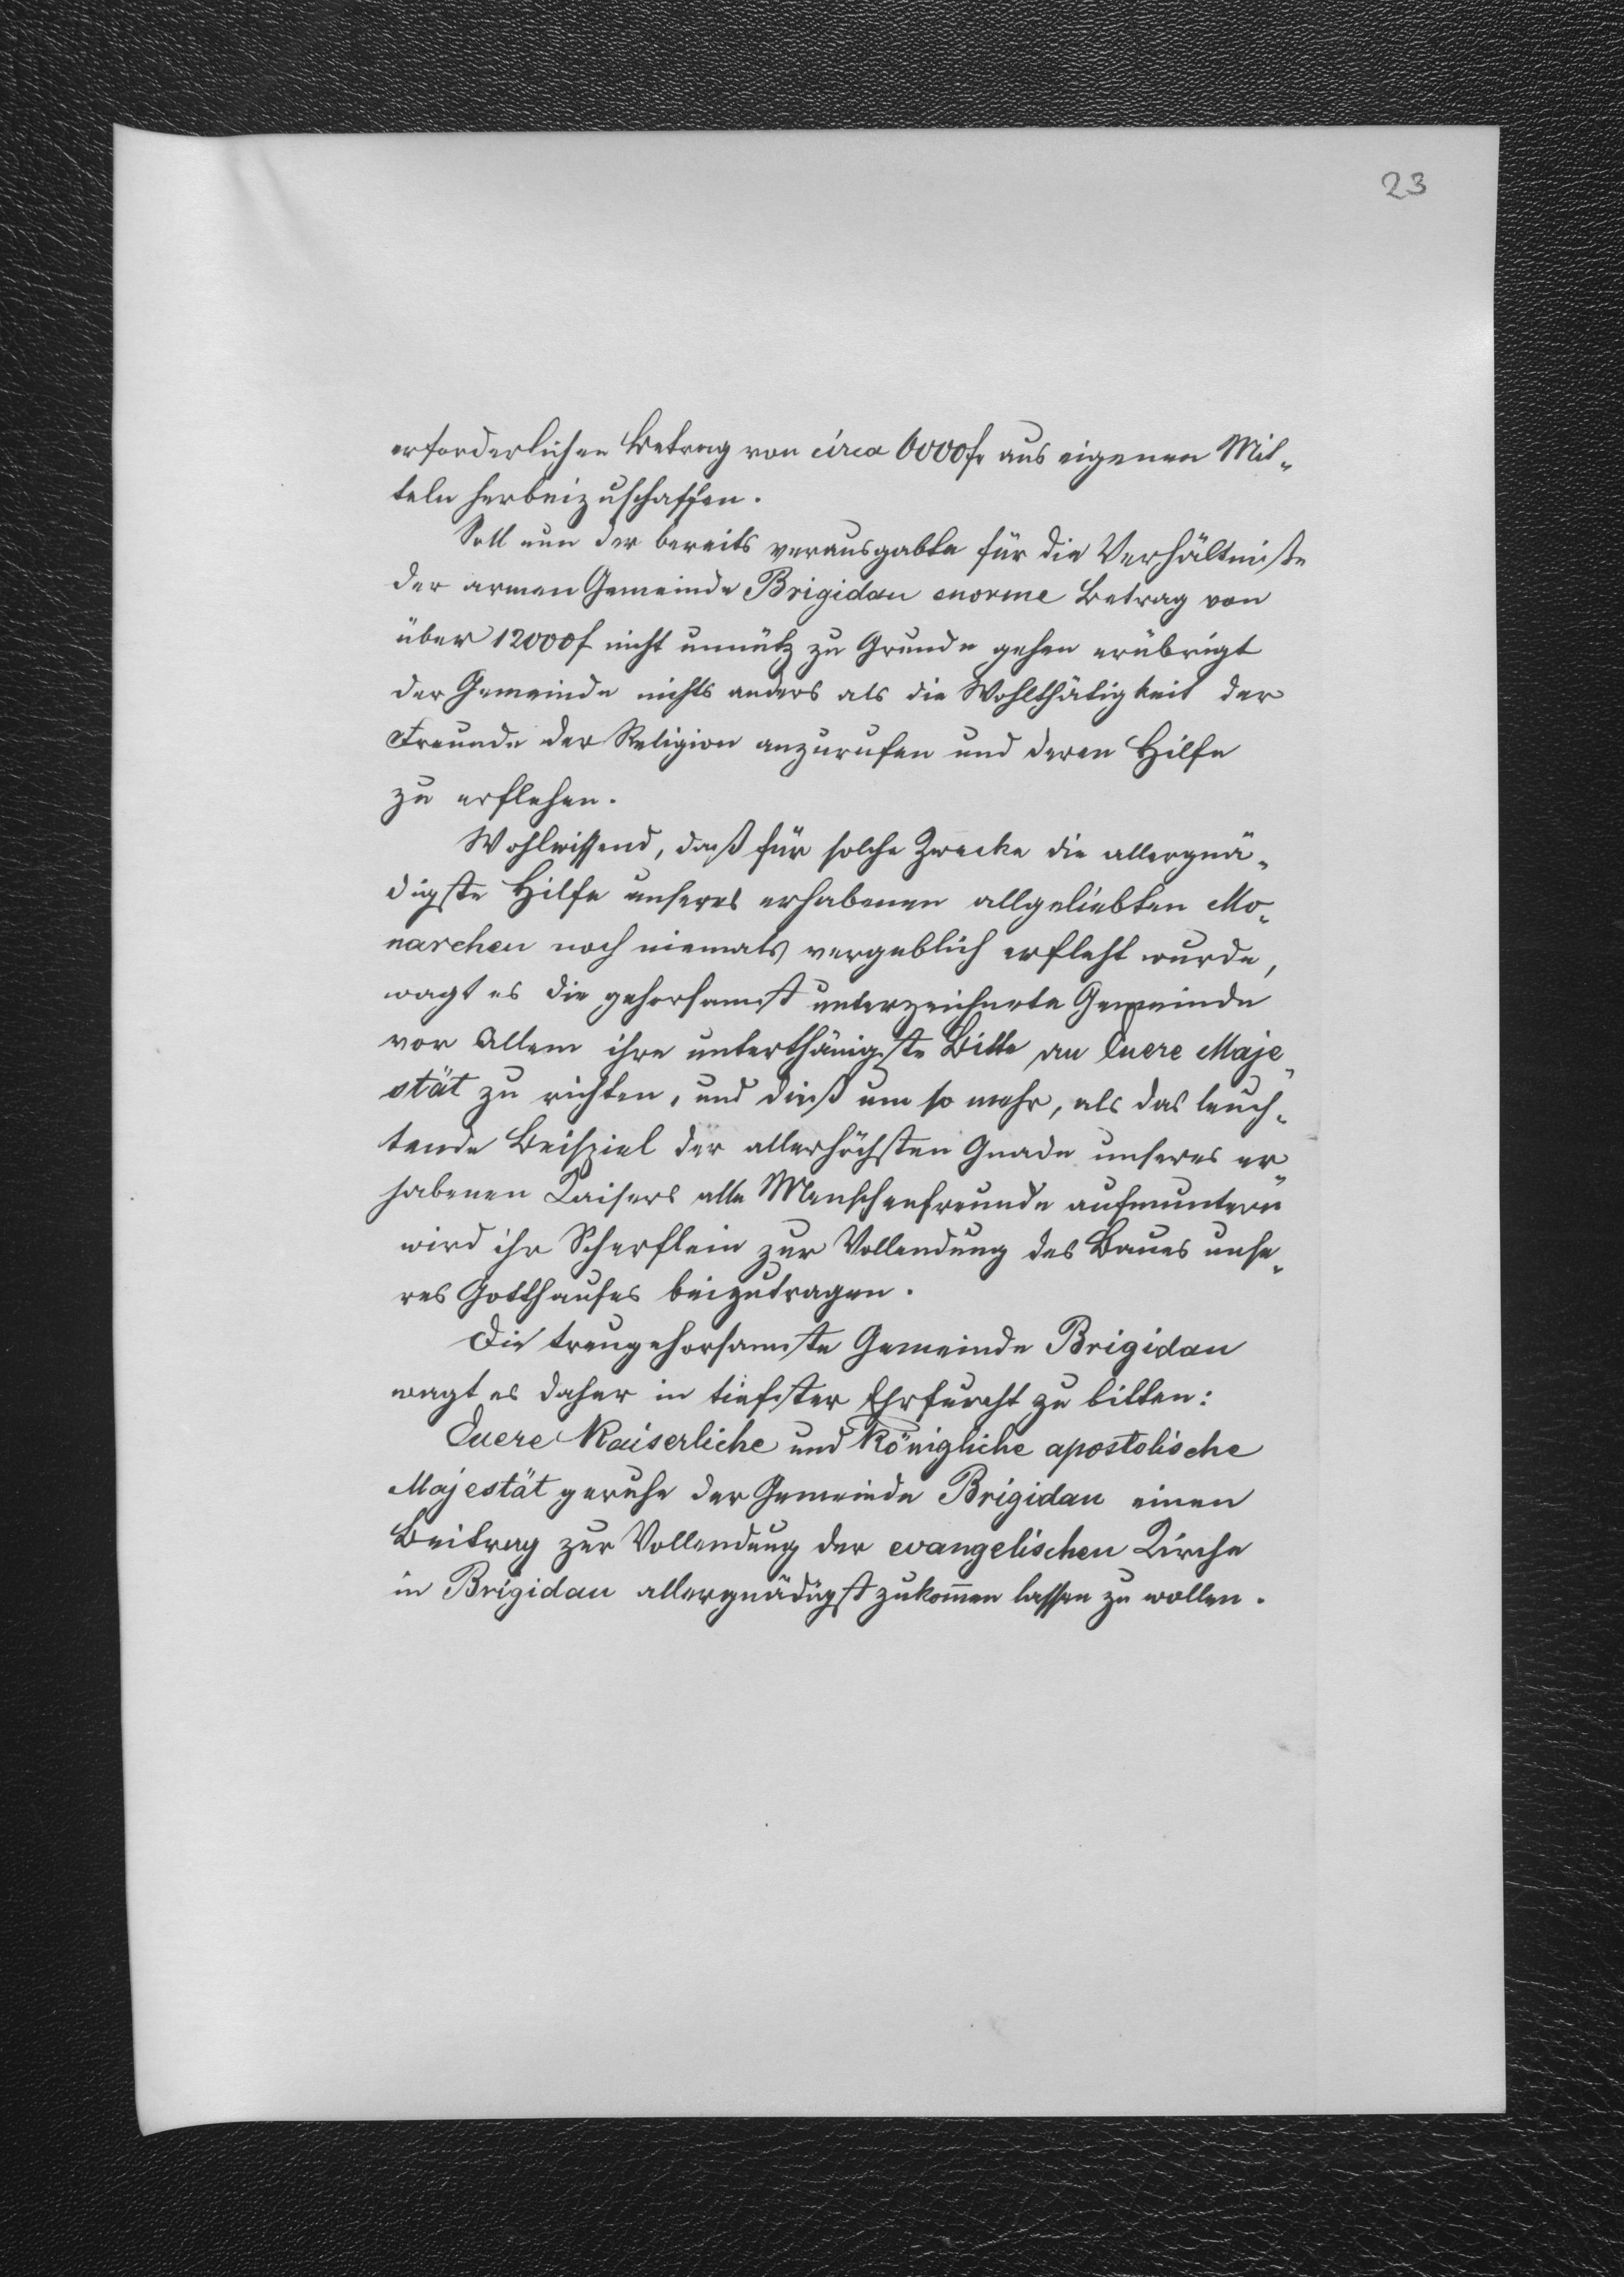 23
erforderlichen Betrag von circa 6000f aus eigenen Mit-
teln herbeizuschaffen.
Soll nun der bereits verausgabte für die Verhältniße
der armen Gemeinde Brigidau enorme Betrag von
über 12000f nicht unnütz zu Grunde gehen erübrigt
der Gemeinde nichts anders als die Wohlthätigkeit der
Freunde der Religion anzurufen und deren Hilfe
zu erflehen.
Wohlwissend, daß für solche Zwecke die allergnä-
digste Hilfe unseres erhabenen allgeliebten Mo-
narchen noch niemals vergeblich erfleht wurde,
wagt es die gehorsamst unterzeichnete Gemeinde
vor Allem ihre unterthänigste Bitte an Euere Maje-
stät zu richten, und dieß um so mehr, als das leuch-
tende Beispiel der allerhöchsten Gnade unseres er-
habenen Kaisers alle Menschenfreunde aufmuntern
wird ihr Scherflein zur Vollendung des Baues unse-
res Gotthauses beizutragen.
Die treugehorsamste Gemeinde Brigidau
wagt es daher in tiefster Ehrfurcht zu bitten:
Euere Kaiserliche und Königliche apostolische
Majestät geruhe der Gemeinde Brigidau einen
Beitrag zur Vollendung der evangelischen Kirche
in Brigidau allergnädigst zukom̄en lassen zu wollen.